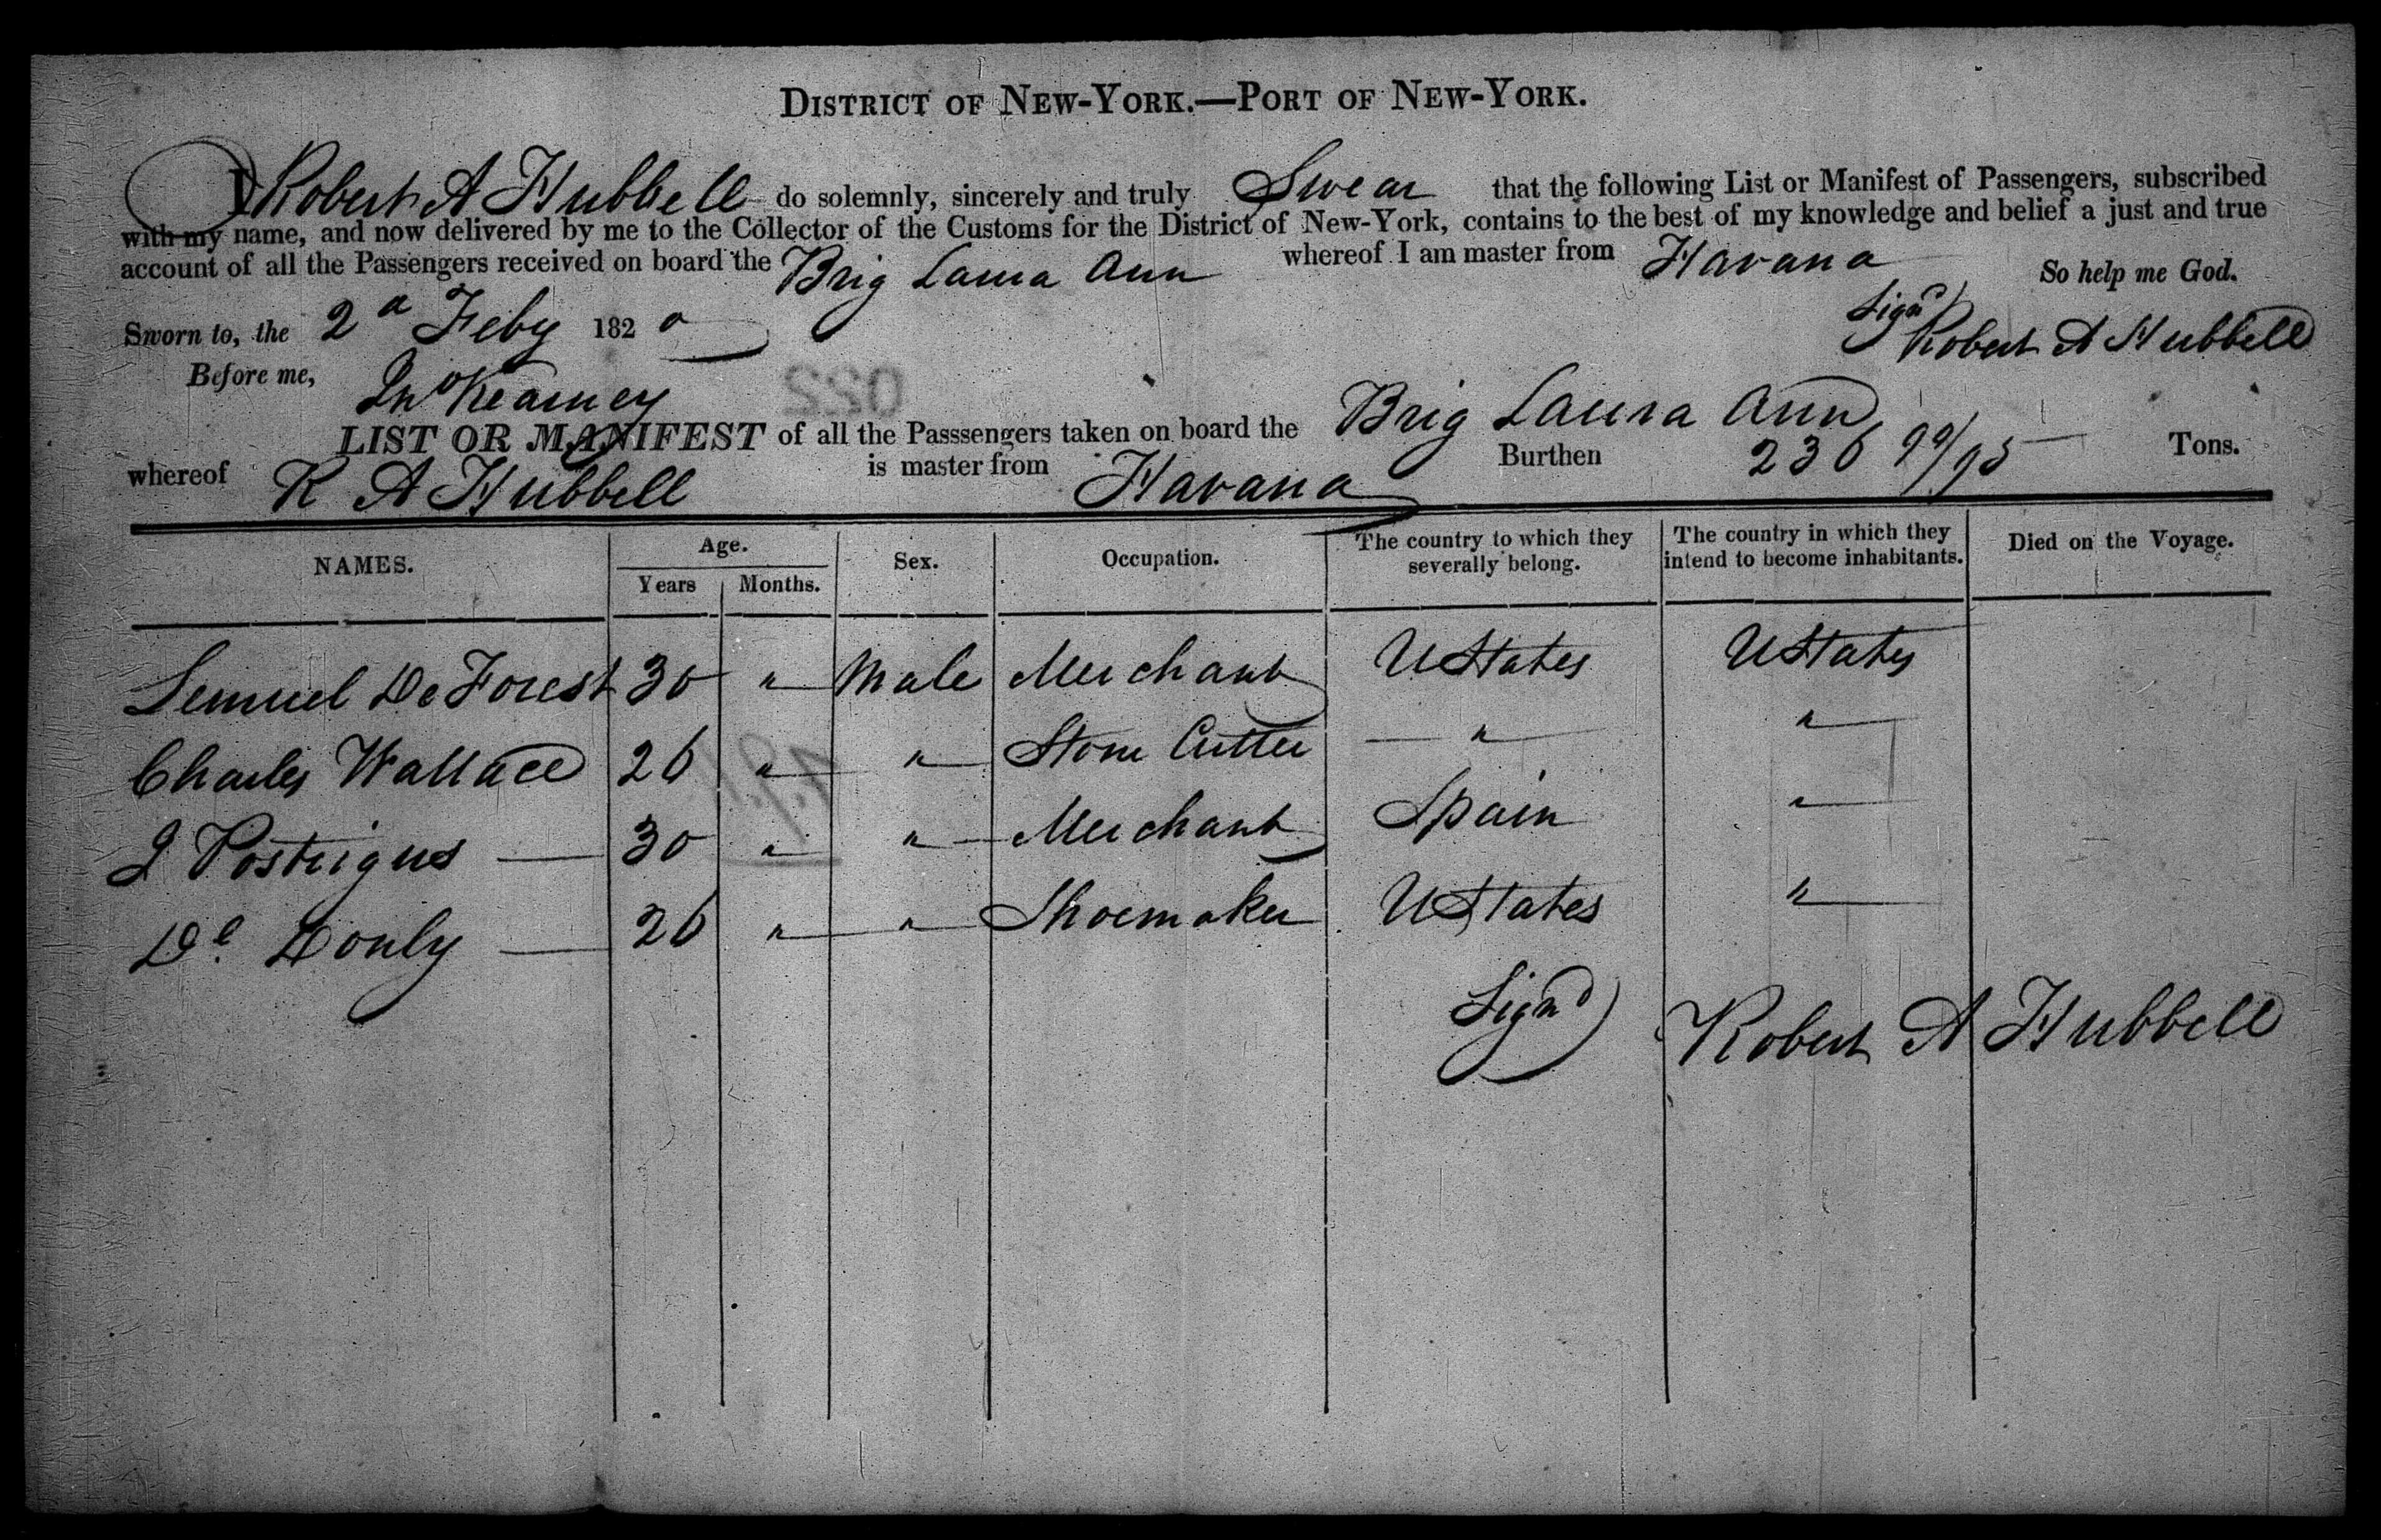 DISTRICT OF NEW-YORK.—PORT OF NEW-YORK.
I Robert A Hubbell do solemnly, sincerely and truly Swear that the following List or Manifest of Passengers, subscribed
with my name, and now delivered by me to the Collector of the Customs for the District of New-York, contains to the best of my knowledge and belief a just and true
account of all the Passengers received on board the Brig Laura Ann whereof I am master from Havana So help me God.
Sworn to, the 2d Feby 1820 Signd Robert A Hubbell
Before me, Jno Kearney
022
LIST OR MANIFEST of all the Passsengers taken on board the Brig Laura Ann
whereof R A Hubbell is master from Havana Burthen 236 90/95 Tons.
NAMES. Age. Years Months. Sex. Occupation. The country to which they severally belong. The country in which they intend to become inhabitants. Died on the Voyage.
Lemuel De Forest 30 " Male Merchant UStates UStates
Charles Wallace 26 " " Stone Cutter " "
Postrigus 30 " " Merchant Spain "
Dl Donly 26 " " Shoemaker UStates "
Signd Robert A Hubbell